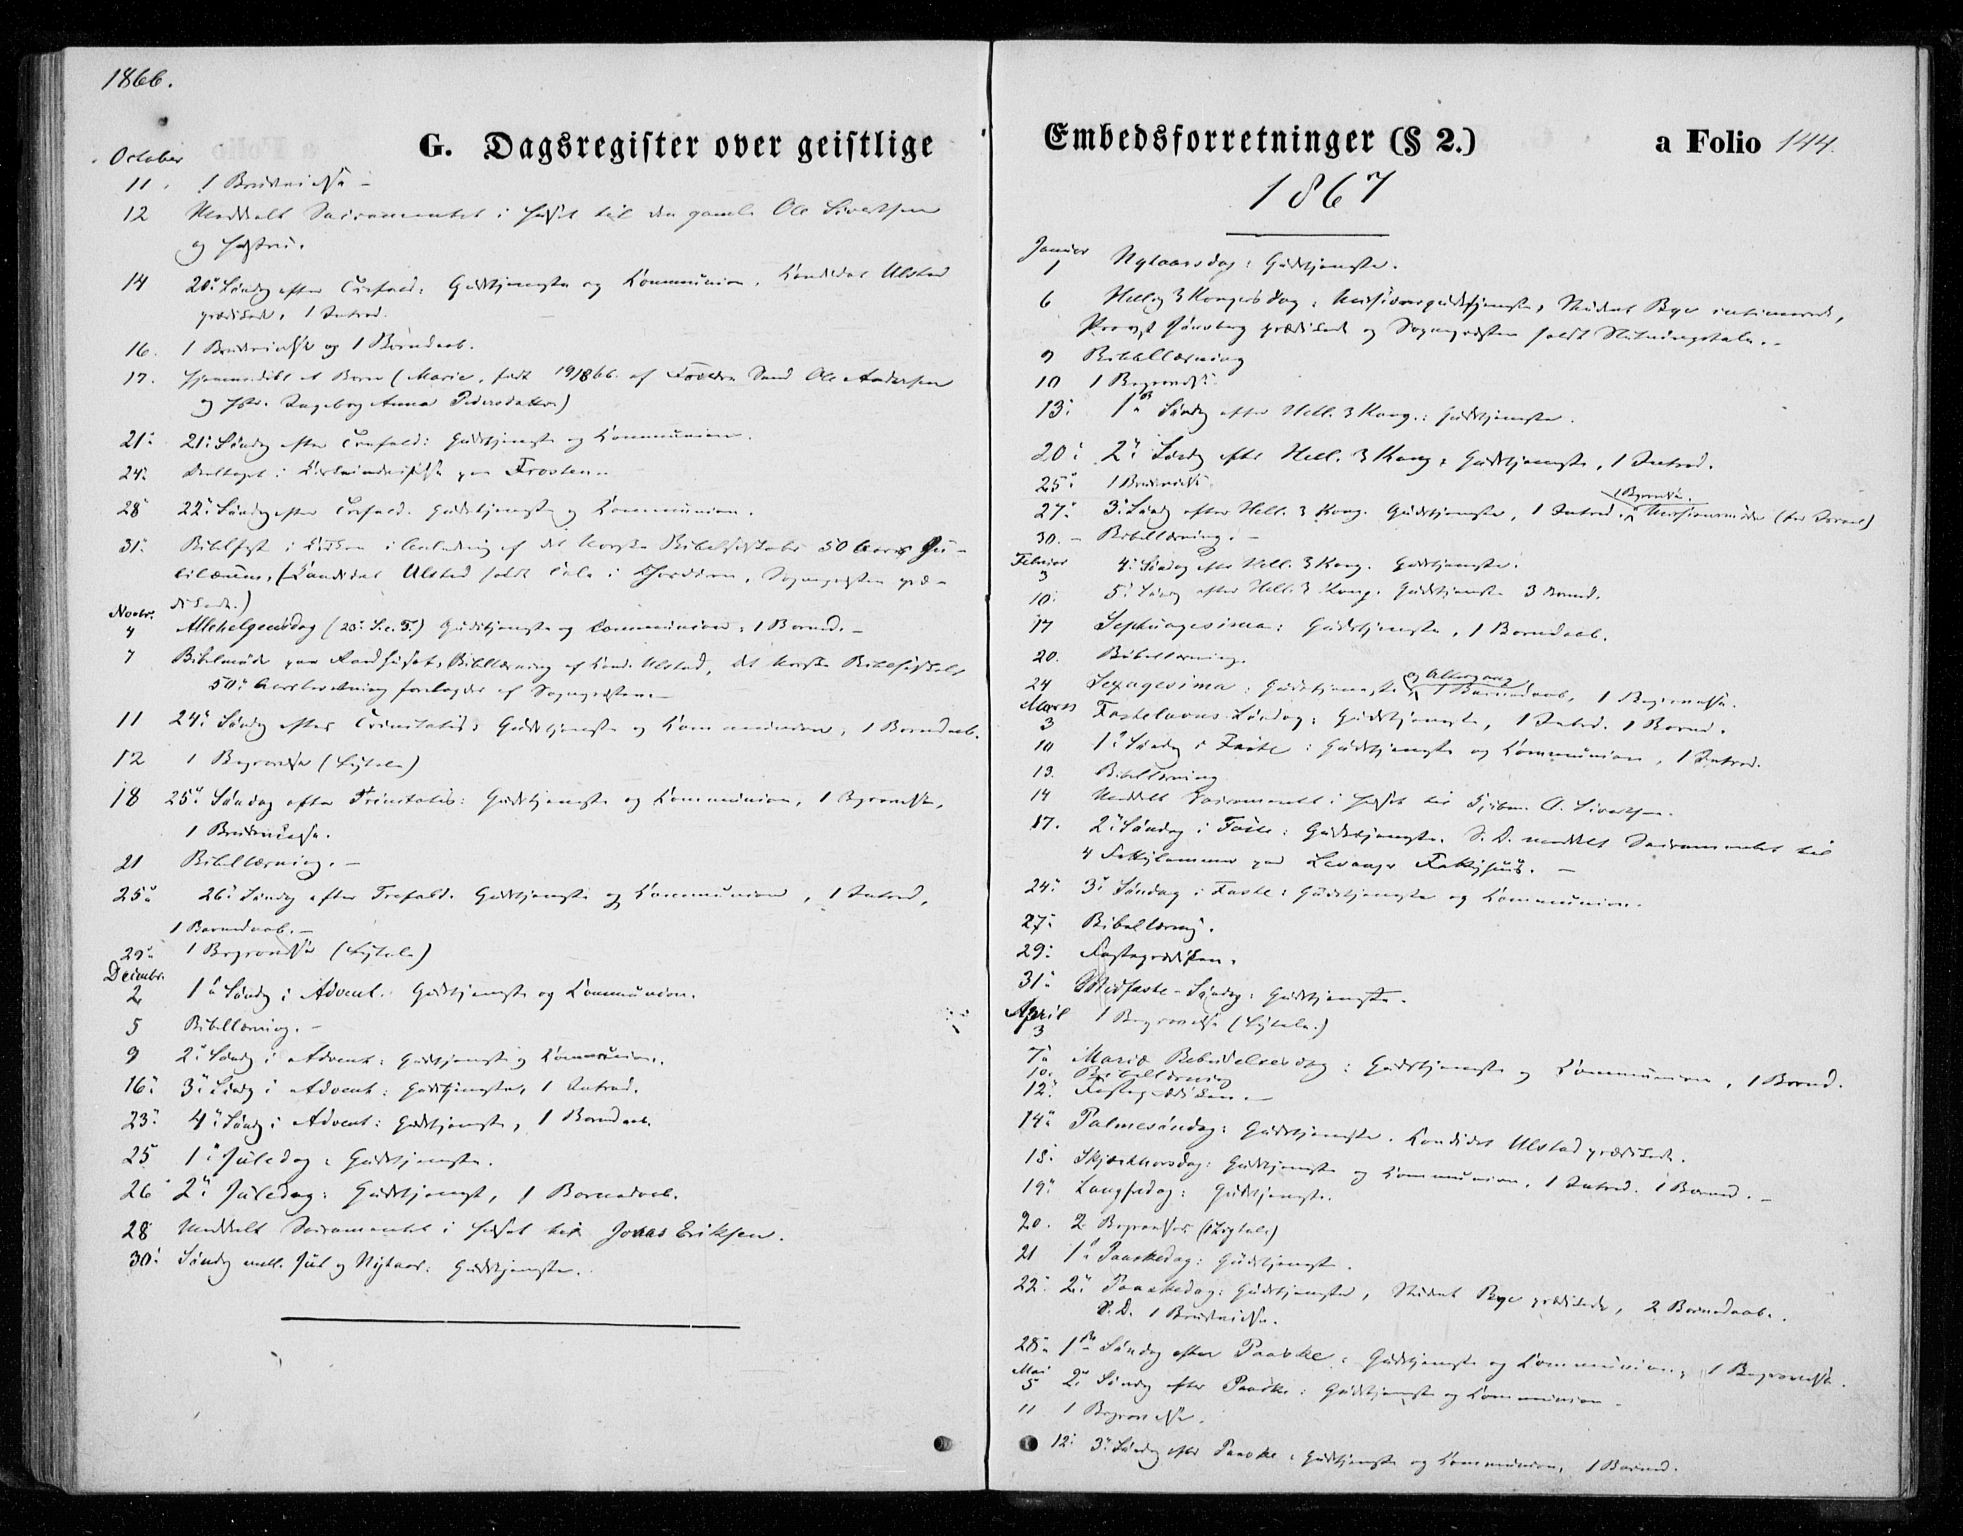 1866.
G. Dagsregister over geistlige
October
11. 1 Brudevielse -
12 Meddelt Sacramentet i Huset til den gamle Ole Sivertsen
og Hustru.
14 20de Søndag efter Trefold: Gudstjeneste og Communion. Candidat Ulstad
prædikede. 1 Introd.
16. 1 Brudevielse og 1 Barnedaab.
17. Hjemmedøbt et Barn (Marie, født 19/8 66. af Forældre Ole Andersen
og Hstr. Ingeborg Anna Pedersdatter)
21de 21de Søndag efter Trefold: Gudstjeneste og Communion.
24de Deltaget i paa Frosten.
28 22de Søndag efter Trefold. Gudstjeneste og Communion.
31te Bibelfest i Kirken i Anledning af det Norske Bibelselskabs 50 Aars Ju-
bilæum. (Candidat Ulstad holdt Tale i Chordøren, Sognepresten præ-
dikede.)
Novbr.
4 Allehelgensdag (23de S. e. T.) Gudstjeneste og Communion. 1 Barned. -
7 Bibelmøde paa Raadhuset: Bibellæsning af Cand. Ulstad, det Norske Bibelselskabs
50de Aarsberetning foredroges af Sognepresten. -
11 24de Søndag efter Trinitatis: Gudstjeneste og Communion, 1 Barnedaab.
12 1 Begravelse (Ligtale)
18 25de Søndag efter Trinitatis: Gudstjeneste og Communion, 1 Begravelse,
1 Brudevielse.
21 Bibellæsning. -
25de 26de Søndag efter Trefold. Gudstjeneste og Communion, 1 Introd.,
1 Barnedaab. -
29de 1 Begravelse (Ligtale)
Decembr.
2 1ste Søndag i Advent. Gudstjeneste og Communion.
5 Bibellæsning. -
9 2den Søndag i Advent: Gudstjeneste og Communion.
16de 3die Søndag i Advent: Gudstjeneste, 1 Introd.
23de 4de Søndag i Advent: Gudstjeneste, 1 Barnedaab.
25 1ste Juledag: Gudstjeneste.
26 2den Juledag: Gudstjeneste, 1 Barnedaab.
28 Meddelt Sacramentet i Huset til Jonas Eriksen.
30te Søndag mell. Jul og Nytaar: Gudstjeneste.
Embedsforretninger (§ 2.)
a Folio 144.
1867
Januar
1 Nytaarsdag: Gudstjeneste.
6 Hellig 3 Kongers dag: Missionsgudstjeneste, Student Bye intimerede,
Provst prædikede og Sognepresten holdt Slutningstale. -
9 Bibellæsning
10 1 Begravelse
13de 1ste Søndag efter Hell. 3 Kong.: Gudstjeneste.
20de 2den Søndag efter Hell. 3 Kong: Gudstjeneste, 1 Introd.
25de 1 Brudevielse
27de 3die Søndag efter Hell. 3 Kong. Gudstjeneste, 1 Introd. 1 Begravelse. Missionsmøde (for Israel)
30. - Bibellæsning. -
Februar
3 4de Søndag efter Hell. 3 Kong. Gudstjeneste.
10de 5te Søndag efter Hell. 3 Kong. Gudstjeneste 3 Barned.
17 Septuagesima: Gudstjeneste, 1 Barnedaab.
20. Bibellæsning.
24 Sexagesima: Gudstjeneste og Altergang, 1 Barnedaab, 1 Begravelse.
Marts
3 Fastelavns Søndag: Gudstjeneste, 1 Introd. 1 Barned.
10 1ste Søndag i Faste: Gudstjeneste og Communion, 1 Introd.
13. Bibellæsning
14 Meddelt Sacramentet i Huset til O. Sivertsen.
17. 2den Søndag i Faste: Gudstjeneste. S. D. meddelt Sacramentet til
4 Fattiglemmer paa Levanger Fattighuus. -
24de 3die Søndag i Faste: Gudstjeneste og Communion.
27de Bibellæsning.
29de Fasteprædiken.
31te Midfaste-Søndag: Gudstjeneste.
April
3 1 Begravelse (Ligtale.)
7de Mariæ Bebudelsesdag: Gudstjeneste og Communion, 1 Barned.
10de Bibellæsning
12te Fasteprædiken. -
14de Palmesøndag: Gudstjeneste. Candidat Ulstad prædikede.
18de Skjærthorsdag: Gudstjeneste og Communion, 1 Introd. 1 Barned. -
19de Langfredag: Gudstjeneste.
20. 2 Begravelser (1 Ligtale)
21 1ste Paaskedag: Gudstjeneste.
22de 2den Paaskedag: Gudstjeneste, Student Bye prædikede, 2 Barnedaab.
S. D. 1 Brudevielse.
28de 1ste Søndag efter Paaske: Gudstjeneste og Communion, 1 Begravelse.
Mai
5 2den Søndag efter Paaske: Gudstjeneste og Communion.
11 1 Begravelse.
12te 3die Søndag efter Paaske: Gudstjeneste og Communion, 1 Barned.